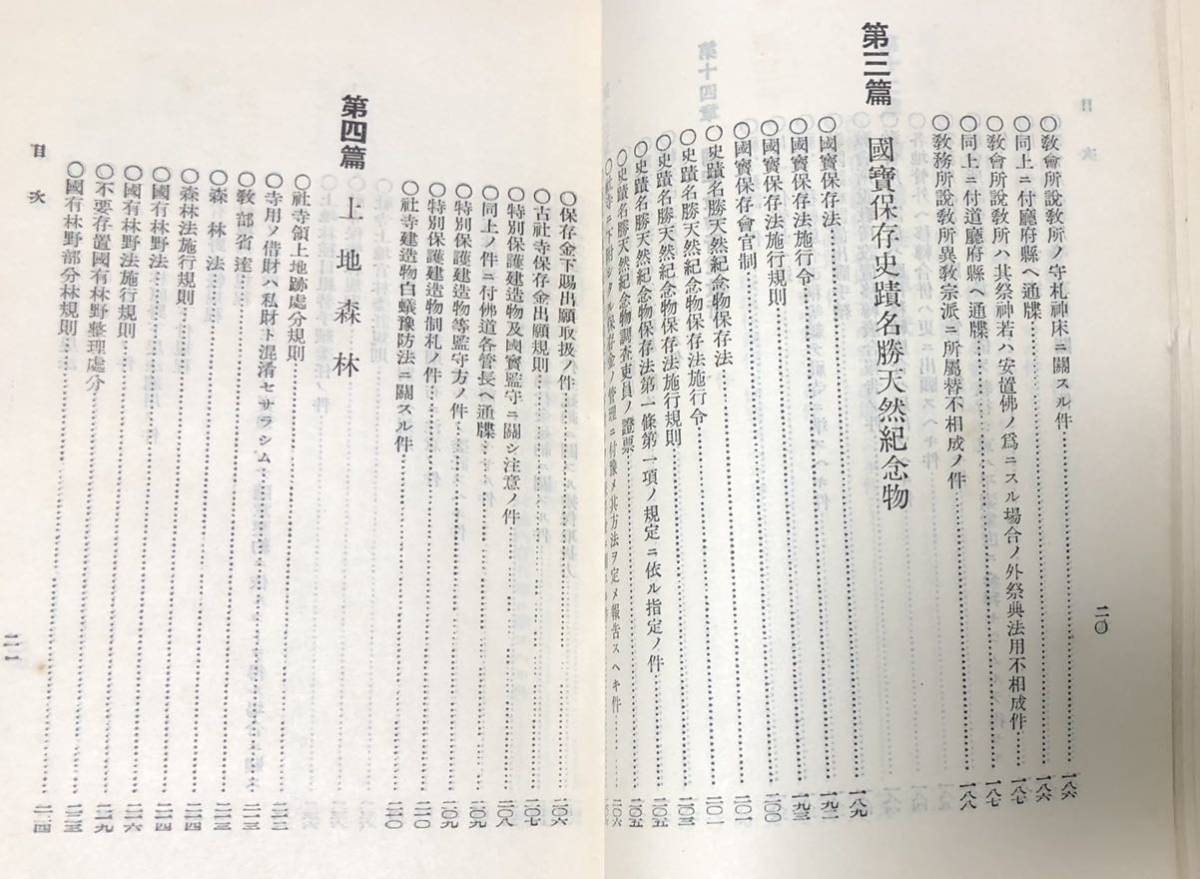 目次
二〇
〇敎會所說敎所ノ守札神床ニ關スル件 一八六
〇同上ニ付廳府縣ヘ通牒 一八六
〇敎會所說敎所ハ其祭神若ハ安置佛ノ爲ニスル場合ノ外祭典法用不相成件 一八七
〇同上ニ付道廳府縣ヘ通牒 一八七
〇敎務所說敎所異敎宗派ニ所屬替不相成ノ件 一八八
第三篇 國寶保存史蹟名勝天然紀念物
〇國寶保存法 一八九
〇國寶保存法施行令 一九二
〇國寶保存法施行規則 一九三
〇國寶保存會官制 二〇〇
〇史蹟名勝天然紀念物保存法 二〇一
〇史蹟名勝天然紀念物保存法施行令 二〇三
〇史蹟名勝天然紀念物保存法施行規則 二〇五
〇史蹟名勝天然紀念物保存法第一條第一項ノ規定ニ依ル指定ノ件 二〇五
〇史蹟名勝天然紀念物調査吏員ノ證票 二〇六
ニ下附シタル保存金ノ管理ニ付豫メ其方法ヲ定メ報告スヘキ件
〇保存金下賜出願取扱ノ件 二〇六
〇古社寺保存金出願規則 二〇七
〇特別保護建造物及國寶監守ニ關シ注意ノ件 二〇八
〇同上ノ件ニ付佛道各管長ヘ通牒 二〇九
〇特別保護建造物等監守方ノ件 二〇九
〇特別保護建造物制札ノ件 二一〇
〇社寺建造物白蟻豫防法ニ關スル件 二一〇
第四篇 上地森林
〇社寺領上地跡處分規則 二一二
〇寺用ノ借財ハ私財ト混淆セサラシム 二一三
〇敎部省達 二一三
〇森林法 二一四
〇森林法施行規則
〇國有林野法 二二四
〇國有林野法施行規則 二二六
〇不要存置國有林野整理處分 二二九
〇國有林野部分林規則
目次
二一